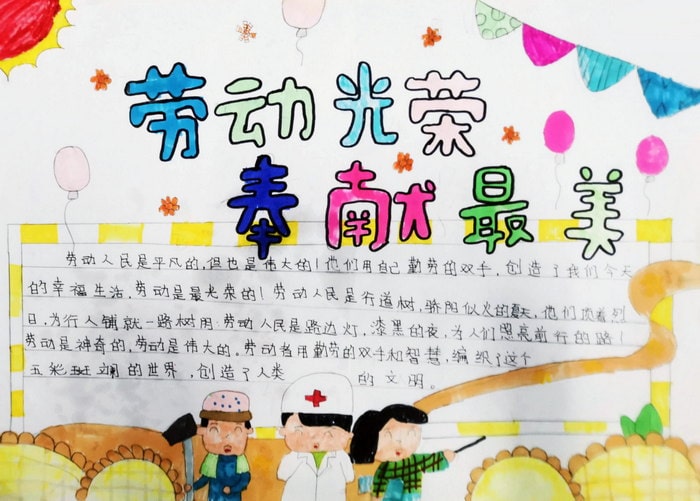 劳动光荣
奉献最美
劳动人民是平凡的,但也是伟大的!他们用自己勤劳的双手,创造了我们今天
的幸福生活,劳动是最光荣的!劳动人民是行道树,骄阳似火的夏天,他们顶着烈
日,为行人铺就一路树用,劳动人民是路边灯,漆黑的夜,为人们照亮前行的路!
劳动是神奇的,劳动是伟大的。劳动者用勤劳的双手和智慧,编织了这个
五彩斑斓的世界,创造了人类的文明。